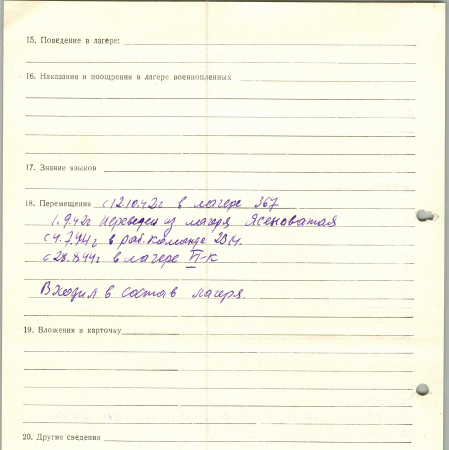 15. Поведение в лагере:
16. Наказания и поощрения в лагере военнопленных
17. Знание языков
18. Перемещения с 12.10.42г в лагере 367
1.9.42г переведен из лагеря Ясеноватая
с 4.7.44г в раб. команде 2914.
с 28.8.44г в лагере II-К
Входил в состав лагеря.
19. Вложения в карточку
20. Другие сведения